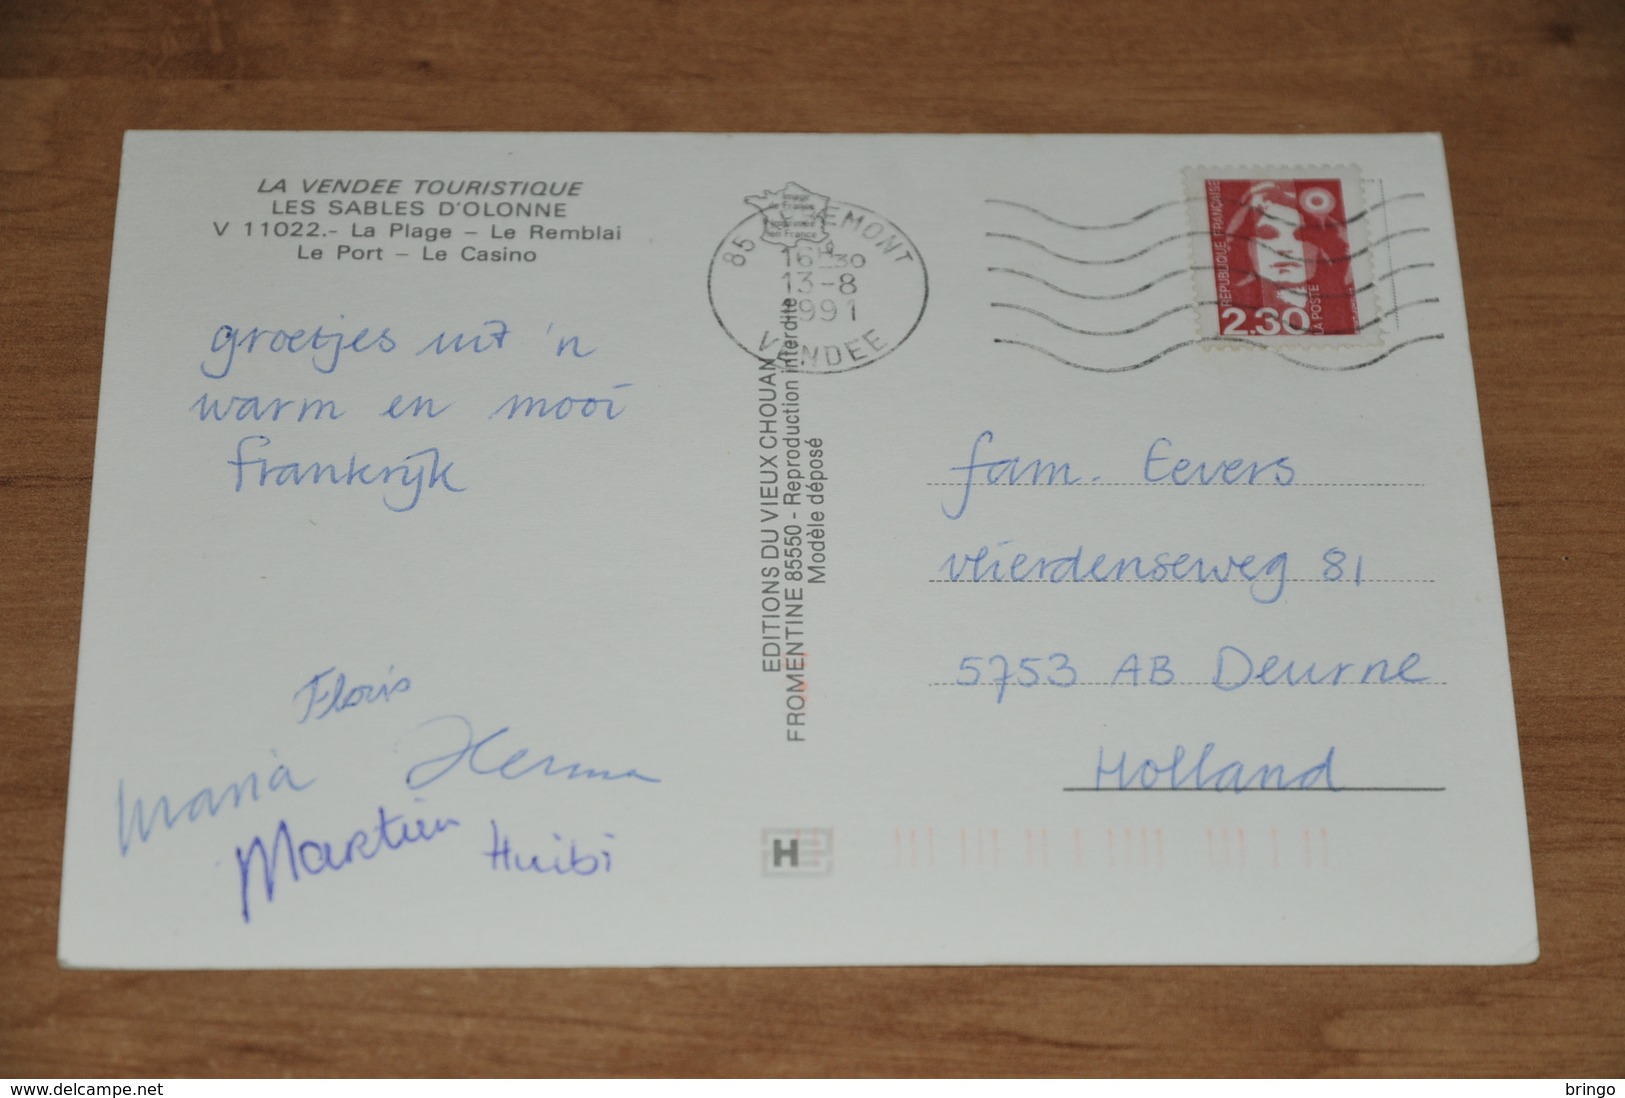 LA VENDEE TOURISTIQUE
LES SABLES D'OLONNE
V 11022.- La Plage - Le Remblai
Le Port - Le Casino
groetjes uit 'n
warm en mooi
frankrijk
Floris
Maria Herma
Martien Huibi
EDITIONS DU VIEUX CHOUAN
FROMENTINE 85550 - Reproduction interdite
Modèle déposé
85
16H30
13-8
1991
VENDEE
REPUBLIQUE FRANÇAISE
2.30
LA POSTE
fam. Eevers
vlierdenseweg 81
5753 AB Deurne
Holland
H
www.delcampe.net
bringo